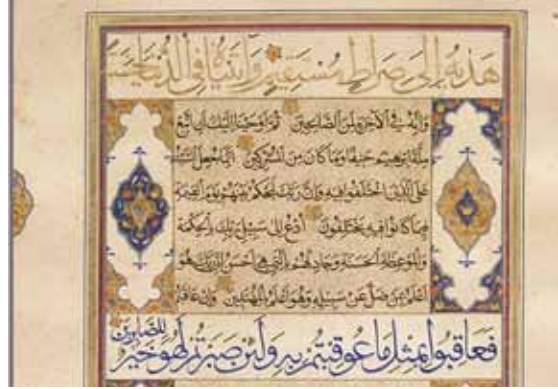 هَدٰيهُ اِلٰى صِرَاطٍ مُسْتَقِيمٍ وَاٰتَيْنَاهُ فِي الدُّنْيَا حَسَنَةً
وَاِنَّهُ فِي الْاٰخِرَةِ لَمِنَ الصَّالِحِينَ ثُمَّ اَوْحَيْنَا اِلَيْكَ اَنِ اتَّبِعْ
مِلَّةَ اِبْرٰهِيمَ حَنِيفًا وَمَا كَانَ مِنَ الْمُشْرِكِينَ اِنَّمَا جُعِلَ السَّبْتُ
عَلَى الَّذِينَ اخْتَلَفُوا فِيهِ وَاِنَّ رَبَّكَ لَيَحْكُمُ بَيْنَهُمْ يَوْمَ الْقِيٰمَةِ
فِيمَا كَانُوا فِيهِ يَخْتَلِفُونَ اُدْعُ اِلٰى سَبِيلِ رَبِّكَ بِالْحِكْمَةِ
وَالْمَوْعِظَةِ الْحَسَنَةِ وَجَادِلْهُمْ بِالَّتِي هِيَ اَحْسَنُ اِنَّ رَبَّكَ هُوَ
اَعْلَمُ بِمَنْ ضَلَّ عَنْ سَبِيلِهِ وَهُوَ اَعْلَمُ بِالْمُهْتَدِينَ وَاِنْ عَاقَبْتُمْ
فَعَاقِبُوا بِمِثْلِ مَا عُوقِبْتُمْ بِهِ وَلَئِنْ صَبَرْتُمْ لَهُوَ خَيْرٌ لِلصَّابِرِينَ